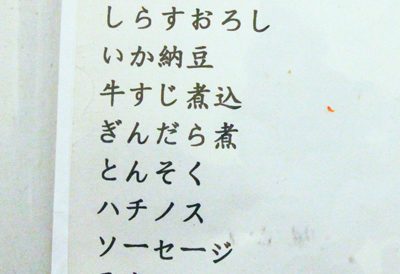 しらすおろし
いか納豆
牛すじ煮込
ぎんだら煮
とんそく
ハチノス
ソーセージ